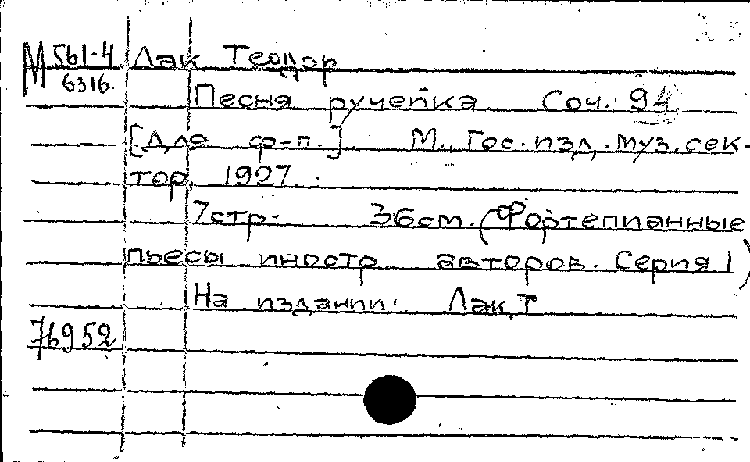 М 561-4 Лак Теодор
6316.
Песня ручейка Соч. 94
[Для ф-п.] М., Гос. изд. муз. сек-
тор, 1927.
7стр. 36см. (Фортепианные
пьесы иностр авторов. Серия 1)
На издании: Лак, Т
76952